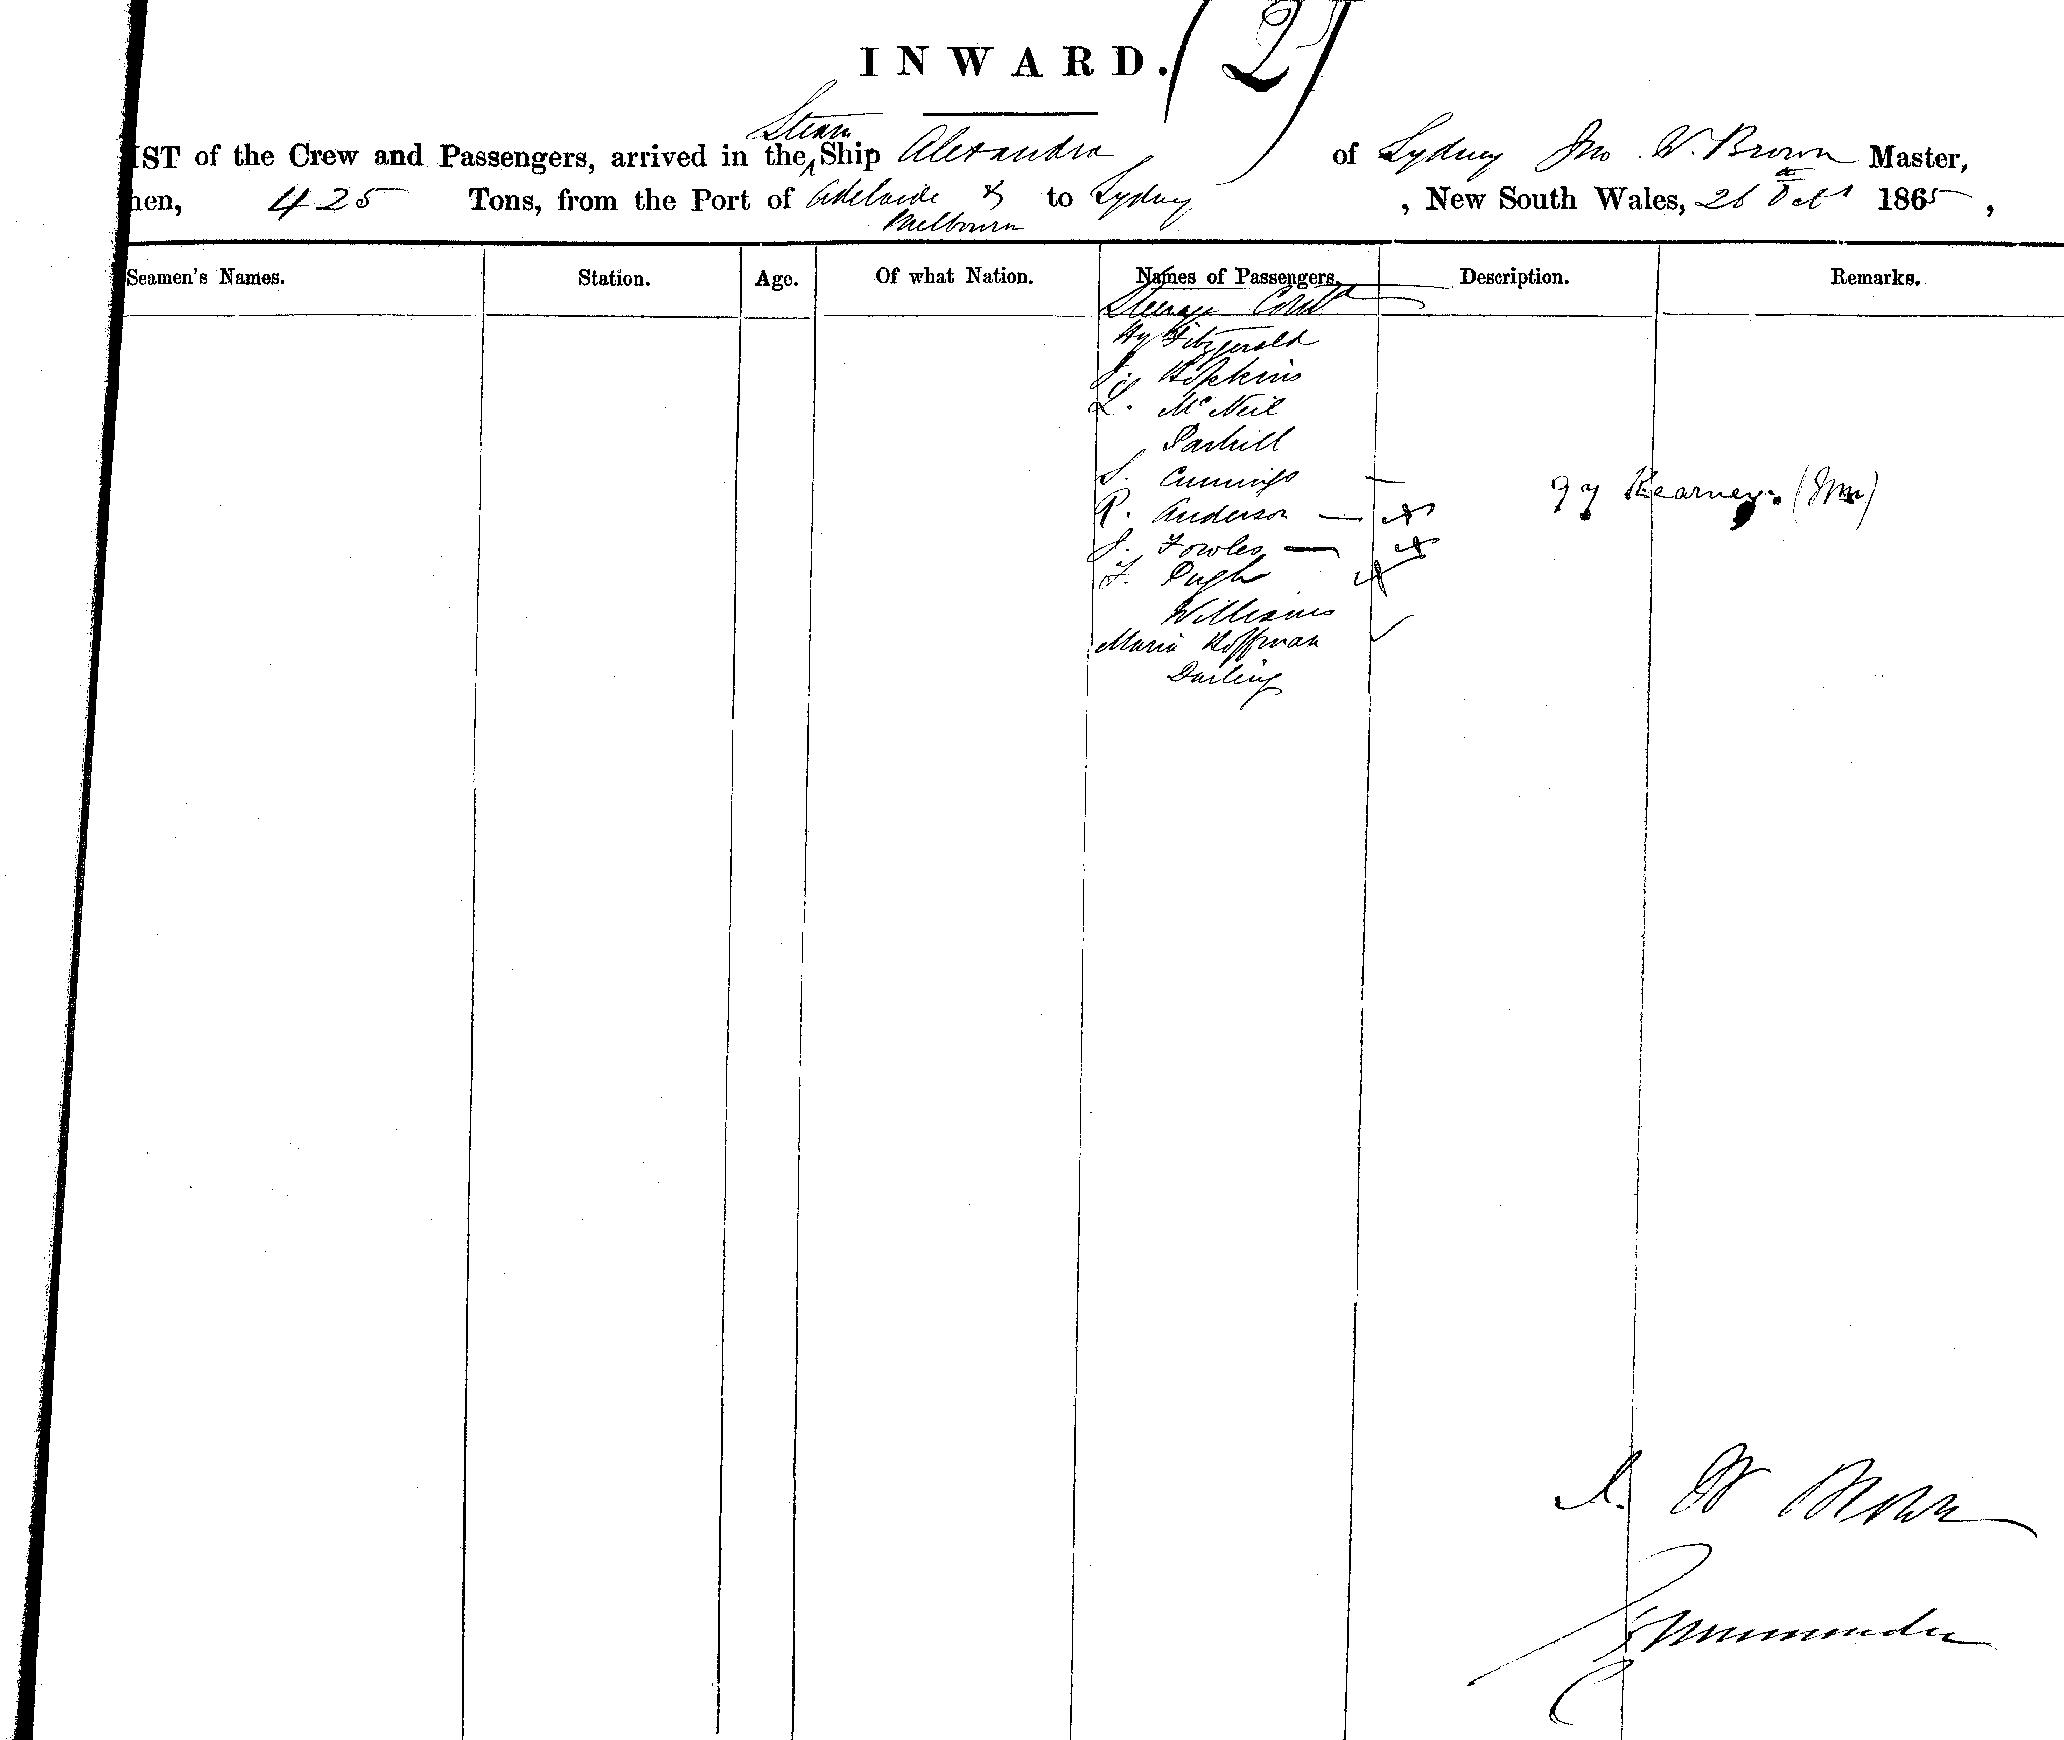 INWARD. (2)
Steam
IST of the Crew and Passengers, arrived in the Ship Alexandra of Sydney Jno. W. Brown Master,
men, 425 Tons, from the Port of Adelaide & to Sydney, New South Wales, 26 Octr 1865,
Melbourn
Seamen's Names. Station. Age. Of what Nation. Names of Passengers. Description. Remarks.
Steerage Contd
Hy Fitzgerald
Hopkins
L. McNeil
Parhill
S. Cummings —
R. Anderson — Kearney (Jnr)
J. Fowles —
F. Pugh
Williams
Maria Hoffman ✓
Darling
J. W Brown
Commander